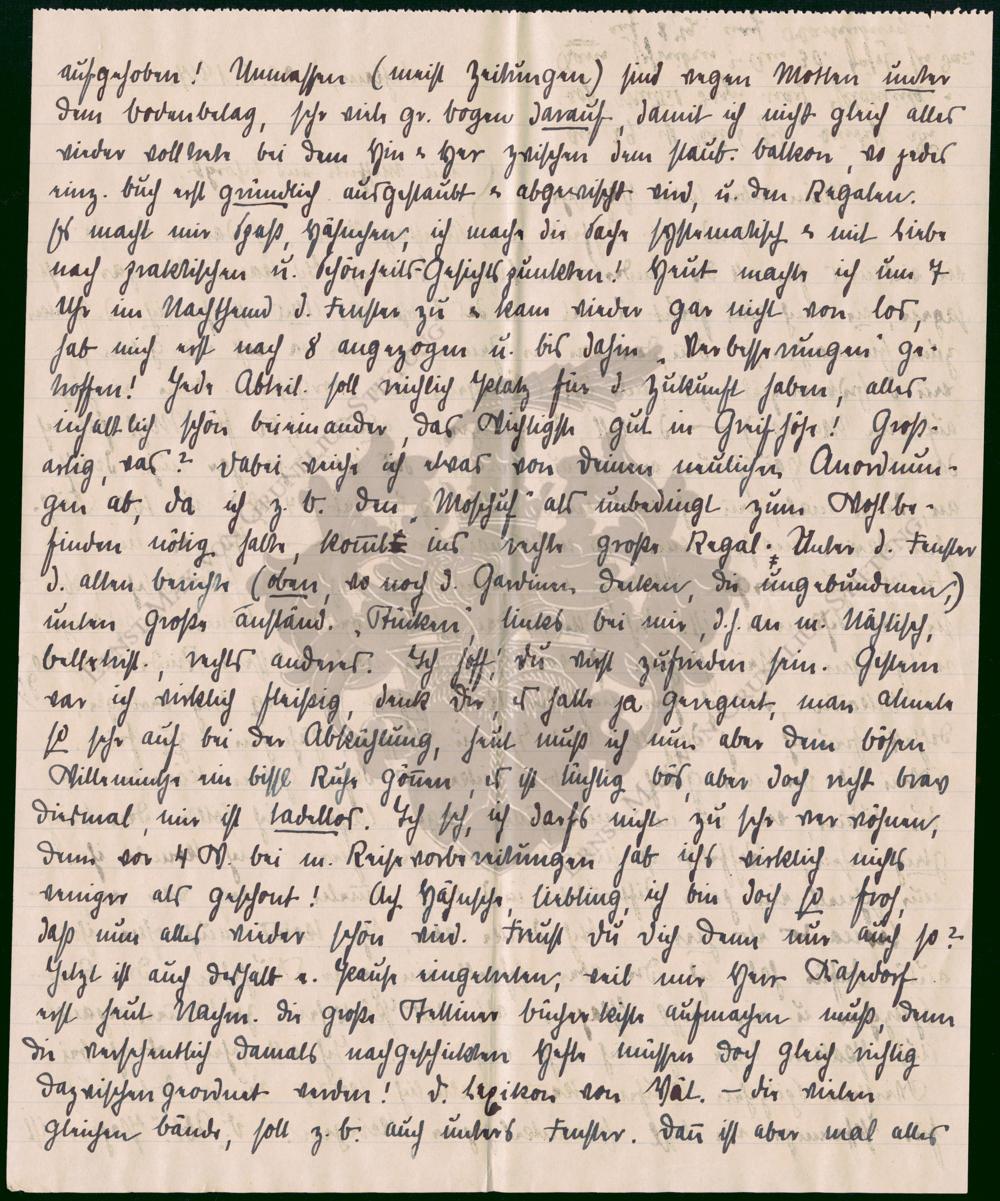 aufgehoben! Unmassen (meist Zeitungen) sind wegen Motten unter
dem Bodenbelag, sehr viele gr. Bogen darauf, damit ich nicht gleich alles
wieder volltrete bei dem Hin & Her zwischen dem staub. Balkon, wo jedes
einz. Buch erst gründlich ausgestaubt & abgewischt wird, u. den Regalen.
Es macht mir Spaß, Hähnchen, ich mache die Sache systematisch & mit Liebe
nach praktischen u. Schönheits-Gesichtspunkten! Heut machte ich um 7
Uhr im Nachthemd d. Fenster zu & kam wieder gar nicht von los,
hab mich erst nach 8 angezogen u. bis dahin „Verbesserungen" ge-
troffen! Jede Abteil. soll reichlich Platz für d. Zukunft haben, alles
inhaltlich schön beieinander, das Wichtigste gut in Greifhöhe! Groß-
artig, was? Dabei weiche ich etwas von deinen neulichen Anordnun-
gen ab, da ich z. B. den „Moschus" als unbedingt zum Wohlbe-
finden nötig halte, kom̄t ins rechte große Regal. Unter d. Fenster
d. alten Berichte (oben, wo noch d. Gardinen decken, die ungebundenen,)
unten große anständ. „Rücken", links bei mir, d.h. an m. Nähtisch,
belletrist., rechts anderes. Ich hoff, du wirst zufrieden sein. Gestern
war ich wirklich fleißig, denk dir, es hatte ja geregnet, man atmete
so sehr auf bei der Abkühlung, heut muß ich nun aber dem bösen
Willeminche ein bissl Ruhe gön̄en, es ist tüchtig bös, aber doch recht brav
diesmal, mir ist tadellos. Ich seh, ich darfs nicht zu sehr verwöhnen,
denn vor 4 W. bei m. Reisevorbereitungen hab ichs wirklich nichts
weniger als geschont! Ach Hähnsche, Liebling, ich bin doch so froh,
daß nun alles wieder schön wird. Freust du dich denn nur auch so?
Jetzt ist auch deshalb e. Pause eingetreten, weil mir Herr Kasedorf
erst heut Nachm. die große Stettiner Bücherkiste aufmachen muß, denn
die versehentlich damals nachgeschickten Hefte müssen doch gleich richtig
dazwischengeordnet werden! D. Lexikon von Vät. – die vielen
gleichen Bände, soll z. B. auch unters Fenster. Dan̄ ist aber mal alles